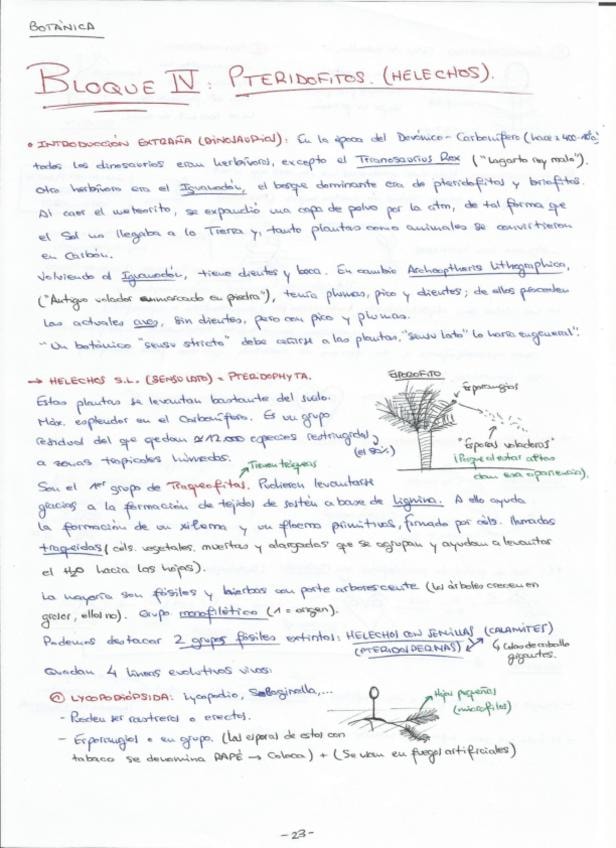 BOTÁNICA
BLOQUE IV: PTERIDOFITOS. (HELECHOS).
• INTRODUCCIÓN EXTRAÑA (DINOSAURIOS): En la época del Devónico-Carbonífero (hace ≈ 400
todos los dinosaurios eran herbívoros, excepto el Tiranosaurius Rex ("lagarto rey malo").
Otro herbívoro era el Iguanodón, el bosque dominante era de pteridofitos y briofitos.
Al caer el meteorito, se expandió una capa de polvo por la atm, de tal forma que
el Sol no llegaba a la Tierra y, tanto plantas como animales se convirtieron
en Carbón.
Volviendo al Iguanodón, tiene dientes y boca. En cambio Archaeopteris Lithographica,
("Antiguo volador enmarcado en piedra"), tenía plumas, pico y dientes; de ellos proceden
las actuales aves, sin dientes, pero con pico y plumas.
"Un botánico "sensu stricto" debe ceñirse a las plantas, "sensu lato" lo haría en general".
→ HELECHOS S.L. (SENSO LATO) = PTERIDOPHYTA.
Estas plantas se levantan bastante del suelo.
Máx. esplendor en el Carbonífero. Es un grupo
residual del que quedan ≈ 12.000 especies restringidas
a zonas tropicales húmedas. (el 80%)
ESPOROFITO
Esporangios
"Esporas voladoras"
(Porque al estar altas
dan esa apariencia).
Tienen tráqueas
Son el 1er grupo de Traqueofitas. Pudieron levantarse
gracias a la formación de tejidos de sostén a base de Lignina. A ello ayuda
la formación de un xilema y un floema primitivos, formado por céls. llamadas
traqueidas (céls. vegetales, muertas y alargadas que se agrupan y ayudan a levantar
el H2O hacia las hojas).
La mayoría son fósiles y hierbas con porte arborescente (los árboles crecen en
grosor, ellos no). Grupo monofilético (1 = origen).
Podemos destacar 2 grupos fósiles extintos: HELECHOS CON SEMILLAS (CALAMITES)
(PTERIDOSPERMAS)
Colas de caballo
gigantes.
Quedan 4 líneas evolutivas vivas:
① LYCOPODIÓPSIDA: Lycopodio, Selaginella,...
- Pueden ser rastreros o erectos.
Hojas pequeñas
(microfilos)
- Esporangios o en grupo. (Las esporas de estos con
tabaco se denomina RAPÉ → Coloca) + (Se usan en fuegos artificiales)
-23-